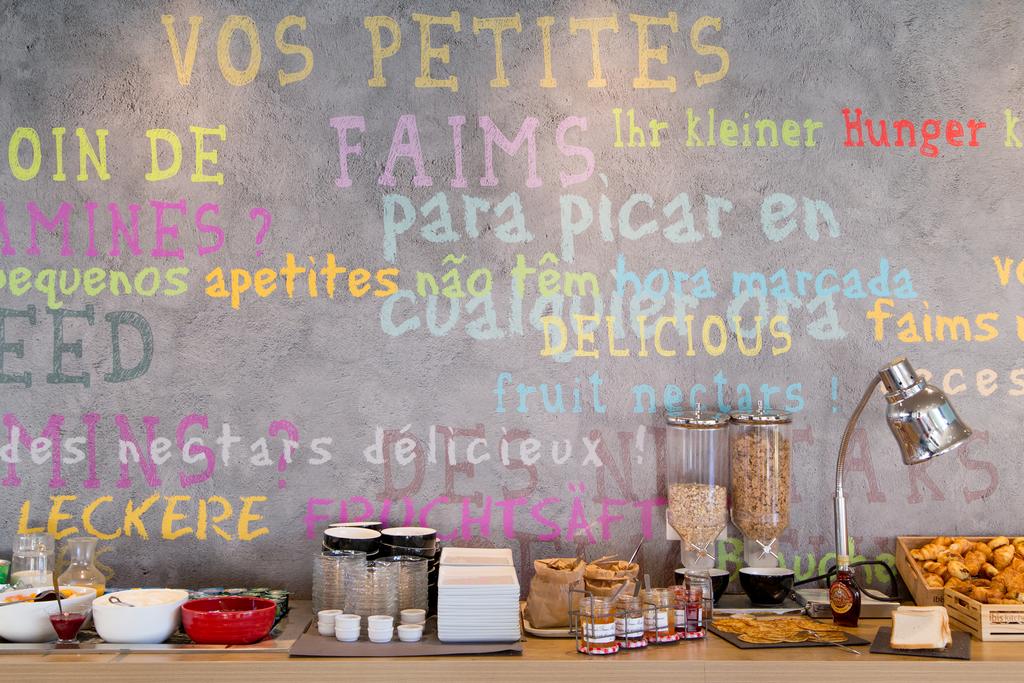 VOS PETITES
OIN DE
FAIMS
Ihr kleiner Hunger k
AMINES ?
para picar en
pequenos apetites não têm hora marcada
cualquier ora
EED
DELICIOUS
faims
fruit nectars !
MINS ?
des nectars délicieux !
DES NECTARS
LECKERE
FRUCHTSÄFT
ibis kitchen